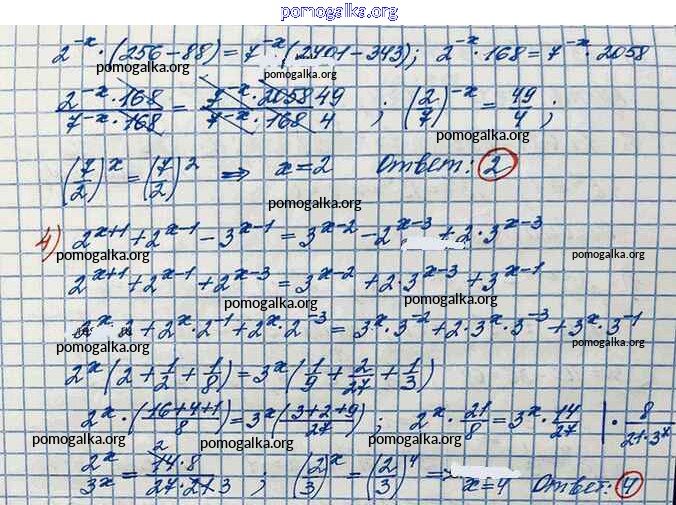 pomogalka.org
2^{-x}·(256-88)=7^{-x}(2401-343); 2^{-x}·168=7^{-x}·2058
pomogalka.org pomogalka.org
\frac{2^{-x}·168}{7^{-x}·168}=\frac{7^{-x}·2058 49}{7^{-x}·168 4}; (\frac{2}{7})^{-x}=\frac{49}{4};
pomogalka.org
(\frac{7}{2})^{x}=(\frac{7}{2})^{2} ⇒ x=2 Ответ: 2
pomogalka.org
4) 2^{x+1}+2^{x-1}-3^{x-1}=3^{x-2}-2^{x-3}+2·3^{x-3}
pomogalka.org pomogalka.org
2^{x+1}+2^{x-1}+2^{x-3}=3^{x-2}+2·3^{x-3}+3^{x-1}
pomogalka.org pomogalka.org
2^{x}·2+2^{x}·2^{-1}+2^{x}·2^{-3}=3^{x}·3^{-2}+2·3^{x}·3^{-3}+3^{x}·3^{-1}
pomogalka.org pomogalka.org
2^{x}(2+\frac{1}{2}+\frac{1}{8})=3^{x}(\frac{1}{9}+\frac{2}{27}+\frac{1}{3})
pomogalka.org
2^{x}·(\frac{16+4+1}{8})=3^{x}(\frac{3+2+9}{27}); 2^{x}·\frac{21}{8}=3^{x}·\frac{14}{27} |·\frac{8}{21·3^{x}}
pomogalka.org pomogalka.org pomogalka.org
\frac{2^{x}}{3^{x}}=\frac{2 14·8}{27·21·3}; (\frac{2}{3})^{x}=(\frac{2}{3})^{4} ⇒ x=4 Ответ: 4
pomogalka.org pomogalka.org